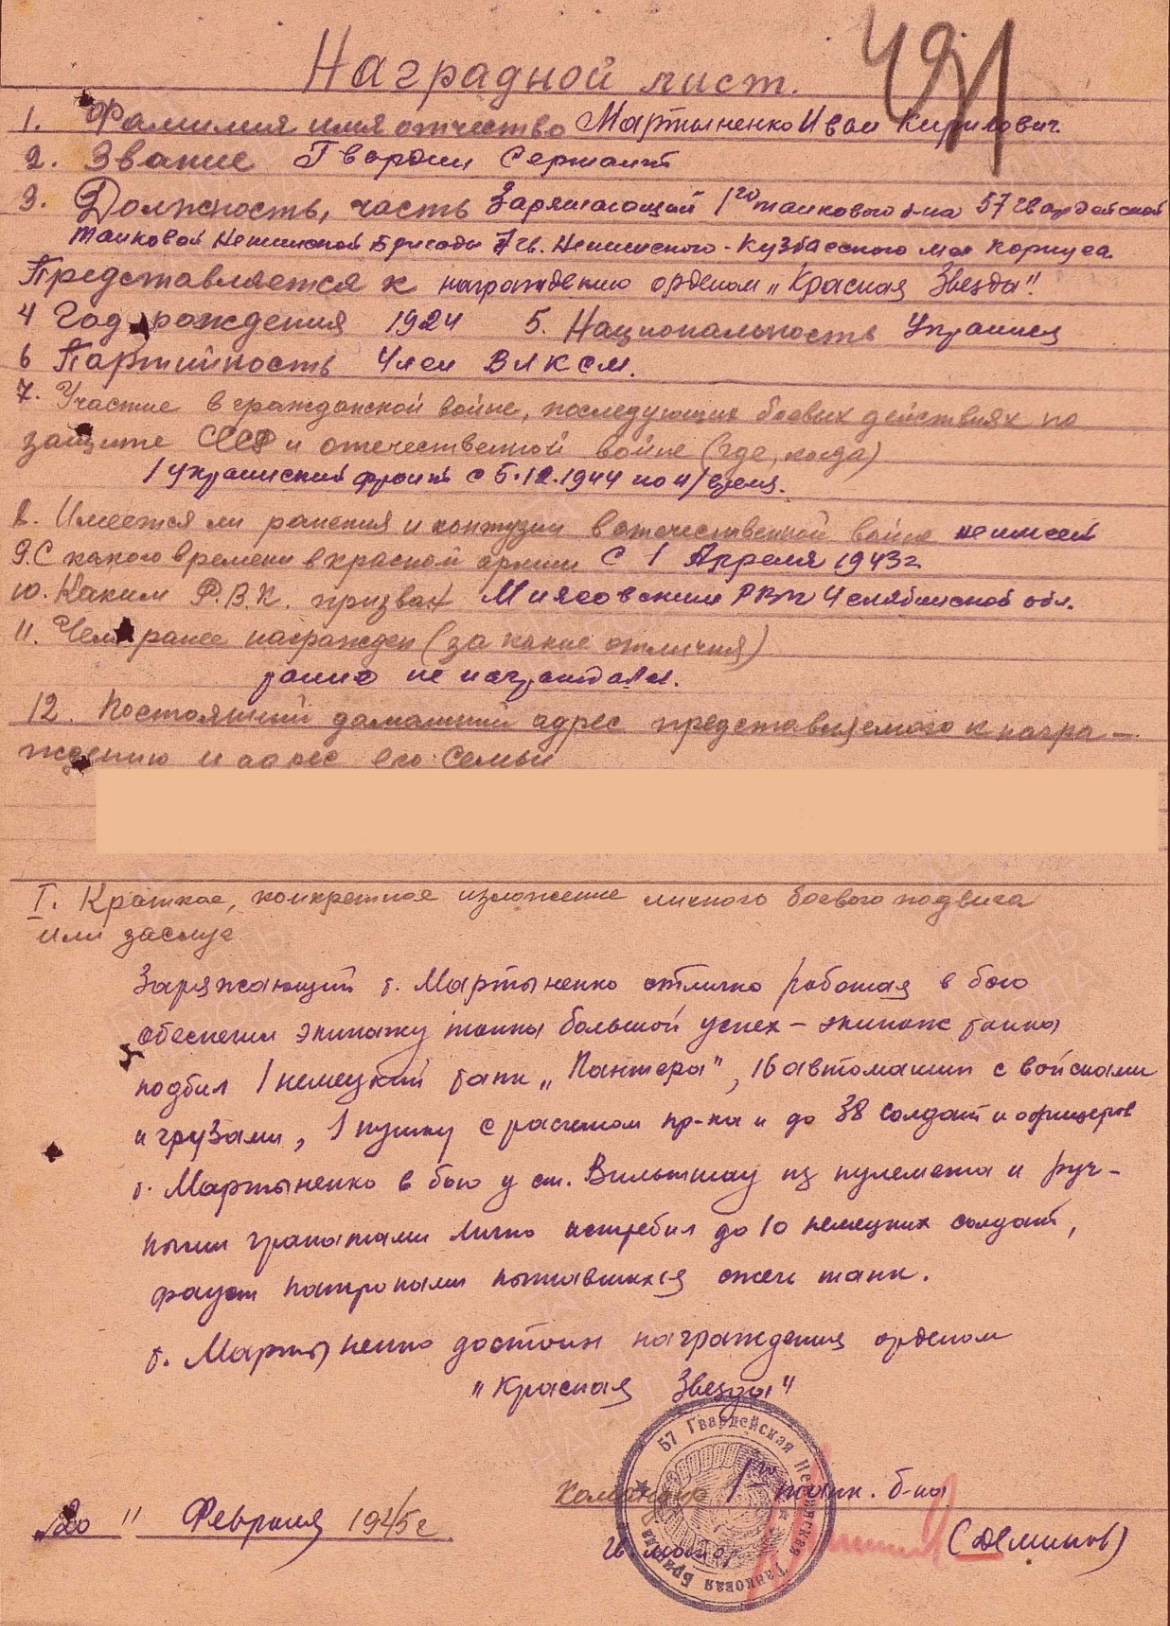 491
Наградной лист.
1. Фамилия имя отчество Мартыненко Иван Кирилович
2. Звание Гвардии Сержант
3. Должность, часть Заряжающий 1го танкового б-на 57 гвардейской
танковой Нежинской Бригады 7 гв. Нежинского-Кузбасского мех корпуса
Представляется к награждению орденом „Красная Звезда".
4 Год рождения 1924 5. Национальность Украинец
6 Партийность Член ВЛКСМ.
7. Участие в гражданской войне, последующих боевых действиях по
защите СССР и отечественной войне (где, когда)
1 Украинский фронт с 5.12.1944 по н/время.
8. Имеется ли ранения и контузии в отечественной войне не имеет
9. С какого времени в красной армии с 1 Апреля 1943 г
10. Каким Р.В.К. призван Миясовским РВК Челябинской обл.
11. Чем ранее награжден (за какие отличия)
ранее не награждался.
12. Постоянный домашний адрес представляемого к награ-
ждению и адрес его семьи
I. Краткое, конкретное изложение личного боевого подвига
или заслуг
Заряжающий т. Мартыненко отлично работая в бою
обеспечил экипажу танка большой успех - экипаж танка
подбил 1 немецкий танк „Пантера", 16 автомашин с войсками
и грузами, 1 пушку с расчетом пр-ка и до 38 солдат и офицеров
т. Мартыненко в бою у ст. Вильтшау из пулемета и руч-
ными гранатами лично истребил до 10 немецких солдат,
фауст патронами пытавшихся сжечь танк.
т. Мартыненко достоин награждения орденом
"Красная Звезда"
57 Гвардейская Нежинская Танковая Бригада
Командир 1го танк. б-на
„20" Февраля 1945 г
гв. майор (Деминов)